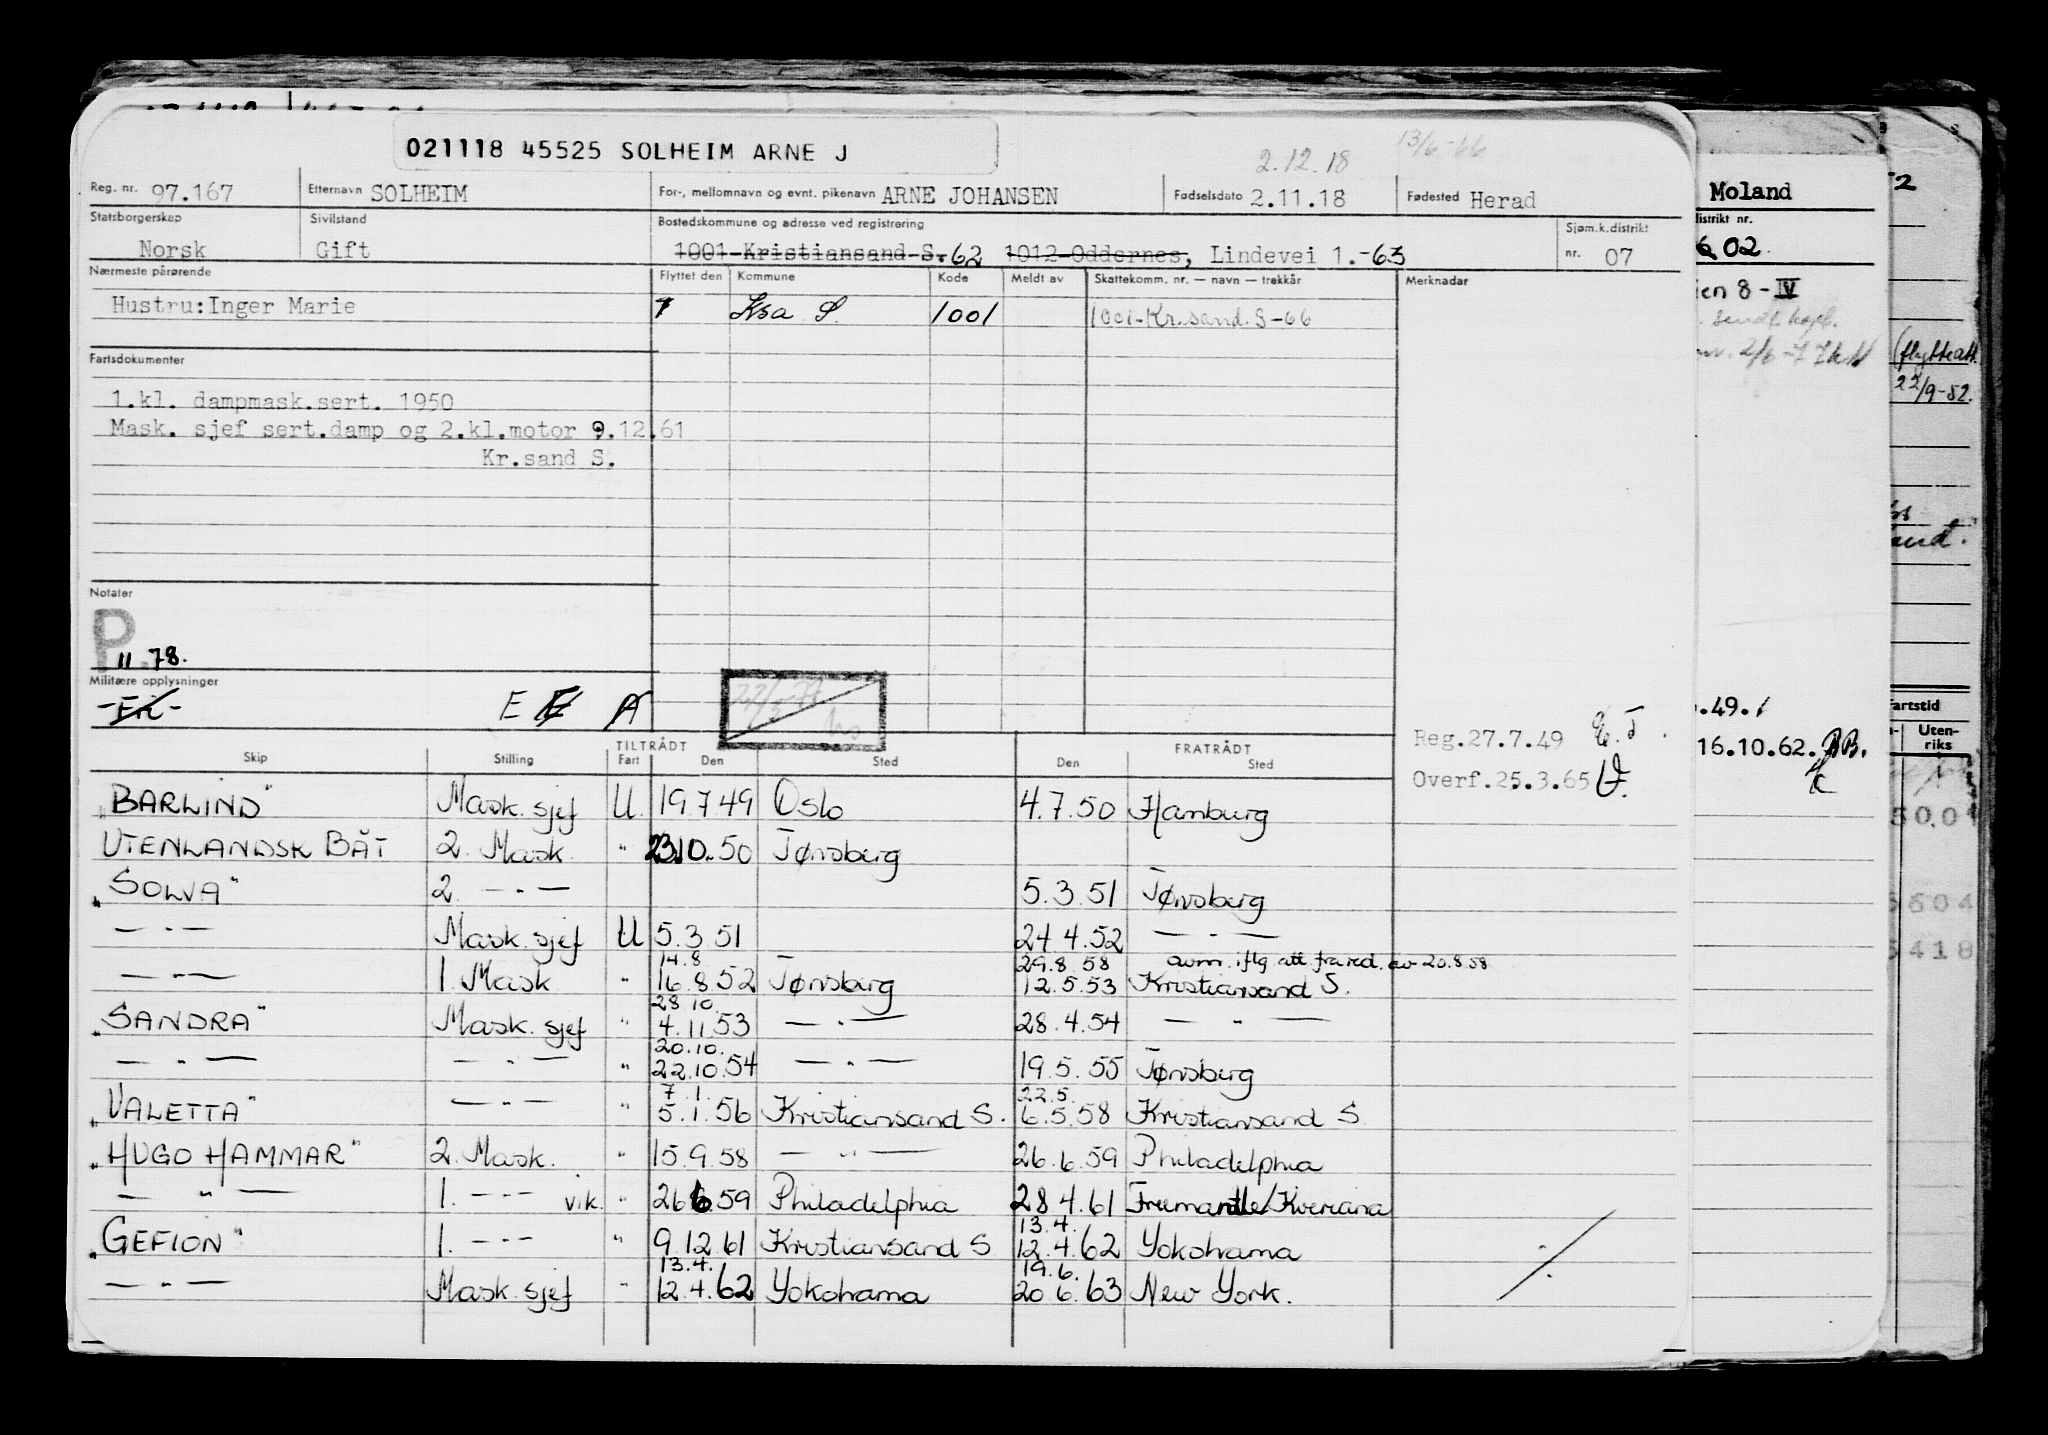 13/6-66
021118 45525 SOLHEIM ARNE J
2.12.18
Reg. nr. 97.167 Etternavn SOLHEIM For-, mellomnavn og evnt. pikenavn ARNE JOHANSEN Fødselsdato 2.11.18 Fødested Herad
Statsborgerskap Sivilstand Bostedskommune og adresse ved registrering Sjøm.k.distrikt
Norsk Gift 1001-Kristiansand S.62 1012-Oddernes, Lindevei 1.-63 nr. 07
Nærmeste pårørende Flyttet den Kommune Kode Meldt av Skattekomm. nr. — navn — trekkår Merknader
Hustru:Inger Marie Ksa S. 1001 1001-Kr.sand.S-66
Fartsdokumenter
1.kl. dampmask.sert. 1950
Mask. sjef sert.damp og 2.kl.motor 9.12.61
Kr.sand S.
Notater
P
11.78.
Militære opplysninger
E A
Reg.27.7.49
Overf.25.3.65
TILTRÅDT FRATRÅDT
Skip Stilling Fart Den Sted Den Sted
"BARLIND" Mask. sjef U. 19.7.49 Oslo 4.7.50 Hamburg
UTENLANDSK BÅT 2. Mask. " 23.10.50 Tønsberg
"SOLVA" 2. — " — 5.3.51 Tønsberg
— " — Mask. sjef U 5.3.51 24.4.52 — " —
14.8 29.8.58 avm. iflg att fra red. av 20.8.58
— " — 1. Mask " 16.8.52 Tønsberg 12.5.53 Kristiansand S.
28.10.
"SANDRA" Mask. sjef " 4.11.53 — " — 28.4.54 — " —
20.10.
— " — — " — " 22.10.54 — " — 19.5.55 Tønsberg
7.1. 22.5.
"VALETTA" — " — " 5.1.56 Kristiansand S. 6.5.58 Kristiansand S
"HUGO HAMMAR" 2. Mask. " 15.9.58 — " — 26.6.59 Philadelphia
— " — 1. — " — vik. " 26.6.59 Philadelphia 28.4.61 Fremantle/Kwinana
13.4.
"GEFION" 1. — " — " 9.12.61 Kristiansand S 12.4.62 Yokohama
13.4. 19.6.
— " — Mask. sjef " 12.4.62 Yokohama 20.6.63 New York.
Moland
distrikt nr.
02
8-IV
.49.
16.10.62.
(flytteatt.
22/9-52.
Fartstid
Uten-
riks